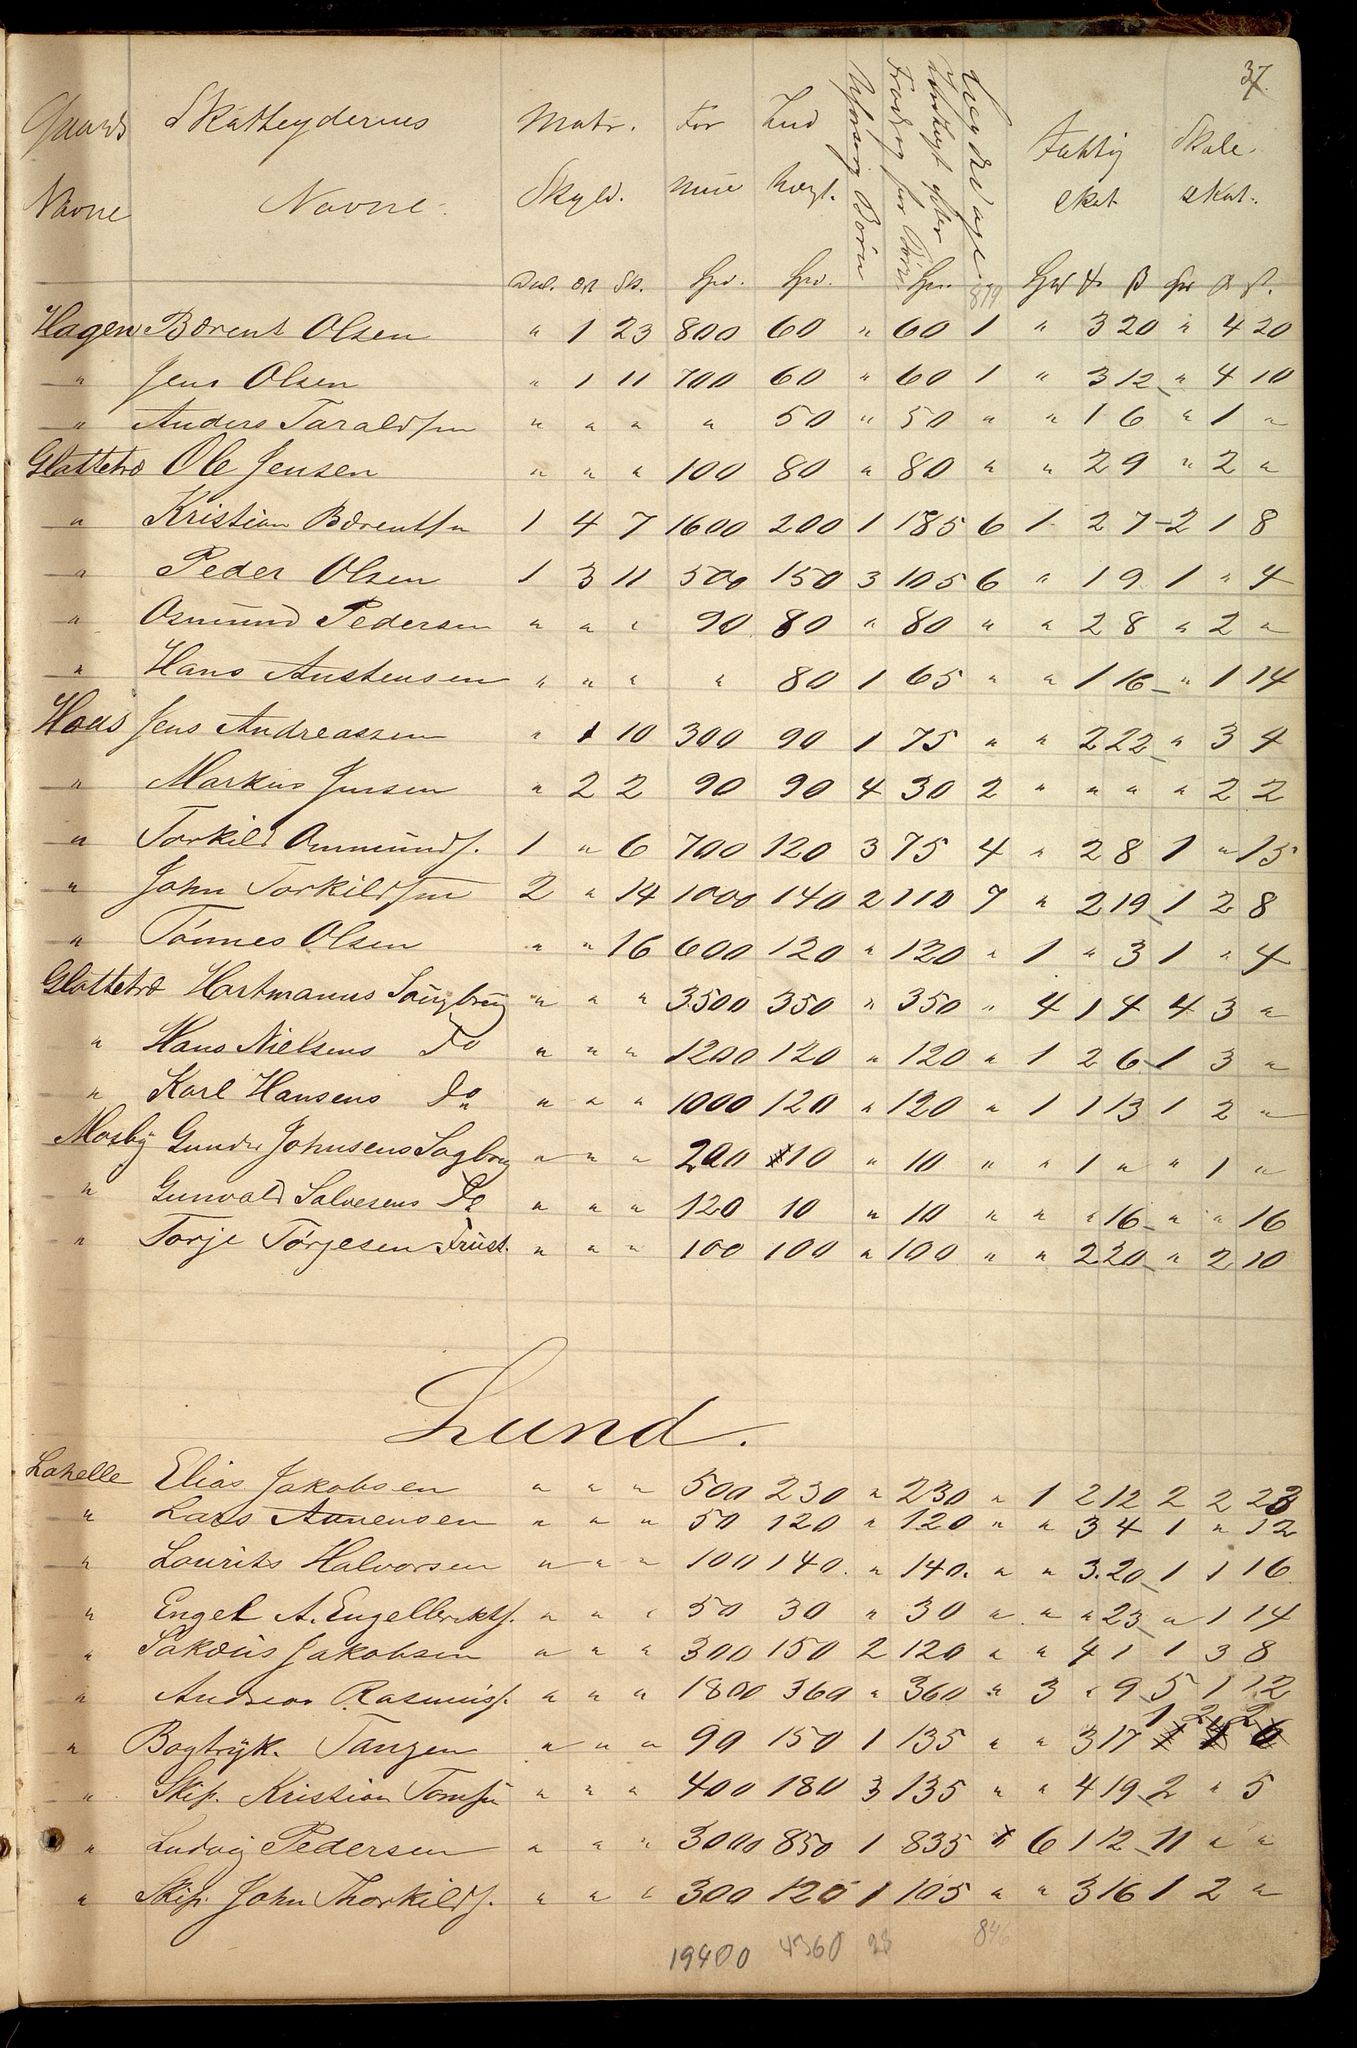 37.
Gaards Skatteydernes Matr. For Ind Uforsørg Børn Fradrag for Børn Indtægt efter Lægdedage Fattig Skole
Navne Navne. Skyld. mue tægt. skat skat.
Dal. Ort Sk. Spd. Spd. Spd. 879 Spd ß Spd
Hagen Bærent Olsen " 1 23 800 60 " 60 1 " 3 20 " 4 20
" Jens Olsen " 1 11 700 60 " 60 1 " 3 12 " 4 10
" Anders Taraldsen " " " " 50 " 50 " " 1 6 " 1 "
Glattetræ Ole Jensen " " " 100 80 " 80 " " 2 9 " 2 "
" Kristian Bærentsn 1 4 7 1600 200 1 185 6 1 2 7 2 1 8
" Peder Olsen 1 3 11 500 150 3 105 6 " 1 9 1 " 4
" Osmund Pedersen " " " 90 80 " 80 " " 2 8 " 2 "
" Hans Austensen " " " " 80 1 65 " " 1 16 " 1 14
Haus Jens Andreassen " 1 10 300 90 1 75 " " 2 22 " 3 4
" Markus Jensen " 2 2 90 90 4 30 2 " " " " 2 2
" Torkild Ommunds. 1 " 6 700 120 3 75 4 " 2 8 1 " 15
" John Torkildsen 2 " 14 1000 140 2 110 7 " 2 19 1 2 8
" Tønnes Olsen " " 16 600 120 " 120 " 1 " 3 1 " 4
Glattetræ Hartmanns Saugbrug " " " 3500 350 " 350 " 4 1 4 4 3 "
" Hans Nielsens Do " " " 1200 120 " 120 " 1 2 6 1 3 "
" Karl Hansens Do " " " 1000 120 " 120 " 1 1 13 1 2 "
Mosby Gunder Johnsens Sagbrug " " " 200 10 " 10 " " 1 " " 1 "
" Gunvald Salvesens Do " " " 120 10 " 10 " " " 16 " " 16
" Torje Tørjesen Frust. " " " 100 100 " 100 " " 2 20 " 2 10
Lund.
Lahelle Elias Jakobsen " " " 500 230 " 230 " 1 2 12 2 2 23
" Lars Aanensen " " " 50 120 " 120 " " 3 4 1 " 12
" Lourits Halvorsen " " " 100 140. " 140. " " 3.20 1 1 16
" Engel A. Engelbrekts. " " " 50 30 " 30 " " " 23 " 1 14
" Sakæus Jakobsen " " " 300 150 2 120 " " 4 1 1 3 8
" Andreas Rasmuss. " " " 1800 360 " 360 " 3 " 9 5 1 12
" Bogtryk. Tangen " " " 90 150 1 135 " " 3 17 1 2 2
" Skip. Kristian Tomsen " " " 400 180 3 135 " " 4 19 2 " 5
" Ludvig Pedersen " " " 3000 850 1 835 " 6 1 12 11 " "
" Skip. John Thorkilds. " " " 300 120 1 105 " " 3 16 1 2 "
19400 4360 23 846